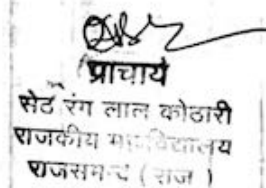 प्राचार्य
सेठ रंग लाल कोठारी
राजकीय महाविद्यालय
राजसमन्द ( राज )